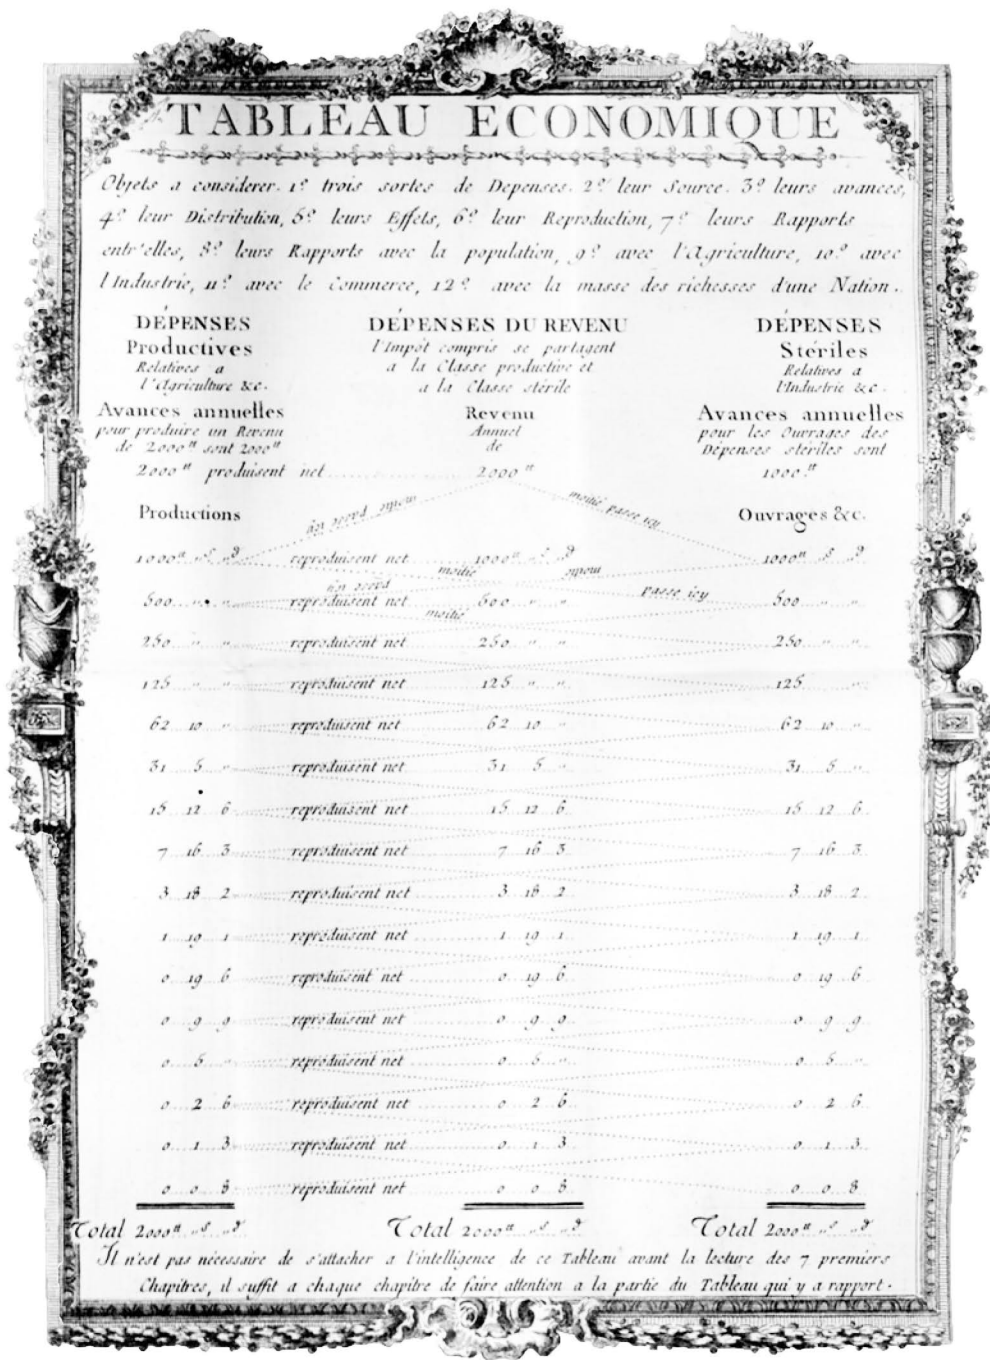 TABLEAU ECONOMIQUE
Objets a considerer. 1.º trois sortes de Depenses. 2.º leur Source. 3.º leurs avances,
4.º leur Distribution, 5.º leurs Effets, 6.º leur Reproduction, 7.º leurs Rapports
entr'elles, 8.º leurs Rapports avec la population, 9.º avec l'Agriculture, 10.º avec
l'Industrie, 11.º avec le Commerce, 12.º avec la masse des richesses d'une Nation.
DÉPENSES DÉPENSES DU REVENU DÉPENSES
Productives l'Impôt compris se partagent Stériles
Relatives a a la Classe productive et Relatives a
l'Agriculture &c. a la Classe stérile l'Industrie &c.
Avances annuelles Revenu Avances annuelles
pour produire un Revenu Annuel pour les Ouvrages des
de 2000.tt sont 2000.tt de Dépenses stériles sont
2000.tt produisent net 2000.tt 1000.tt
moitié passe icy
moitié passe icy
Productions Ouvrages &c.
1000.tt s d reproduisent net 1000.tt s d 1000.tt s d
moitié moitié
passe icy passe icy
500 " " reproduisent net 500 " " 500 " "
moitié
250 " " reproduisent net 250 " " 250 " "
125 " " reproduisent net 125 " " 125 "
62 10 " reproduisent net 62 10 " 62 10 "
31 5 " reproduisent net 31 5 " 31 5 "
15 12 6 reproduisent net 15 12 6 15 12 6
7 16 3 reproduisent net 7 16 3 7 16 3
3 18 2 reproduisent net 3 18 2 3 18 2
1 19 1 reproduisent net 1 19 1 1 19 1
0 19 6 reproduisent net 0 19 6 0 19 6
0 9 9 reproduisent net 0 9 9 0 9 9
0 5 " reproduisent net 0 5 " 0 5 "
0 2 6 reproduisent net 0 2 6 0 2 6
0 1 3 reproduisent net 0 1 3 0 1 3
0 0 8 reproduisent net 0 0 8 0 0 8
Total 2000.tt " s " d Total 2000.tt " s " d Total 2000.tt " s " d
Il n'est pas nécessaire de s'attacher a l'intelligence de ce Tableau avant la lecture des 7 premiers
Chapitres, il suffit a chaque chapitre de faire attention a la partie du Tableau qui y a rapport.